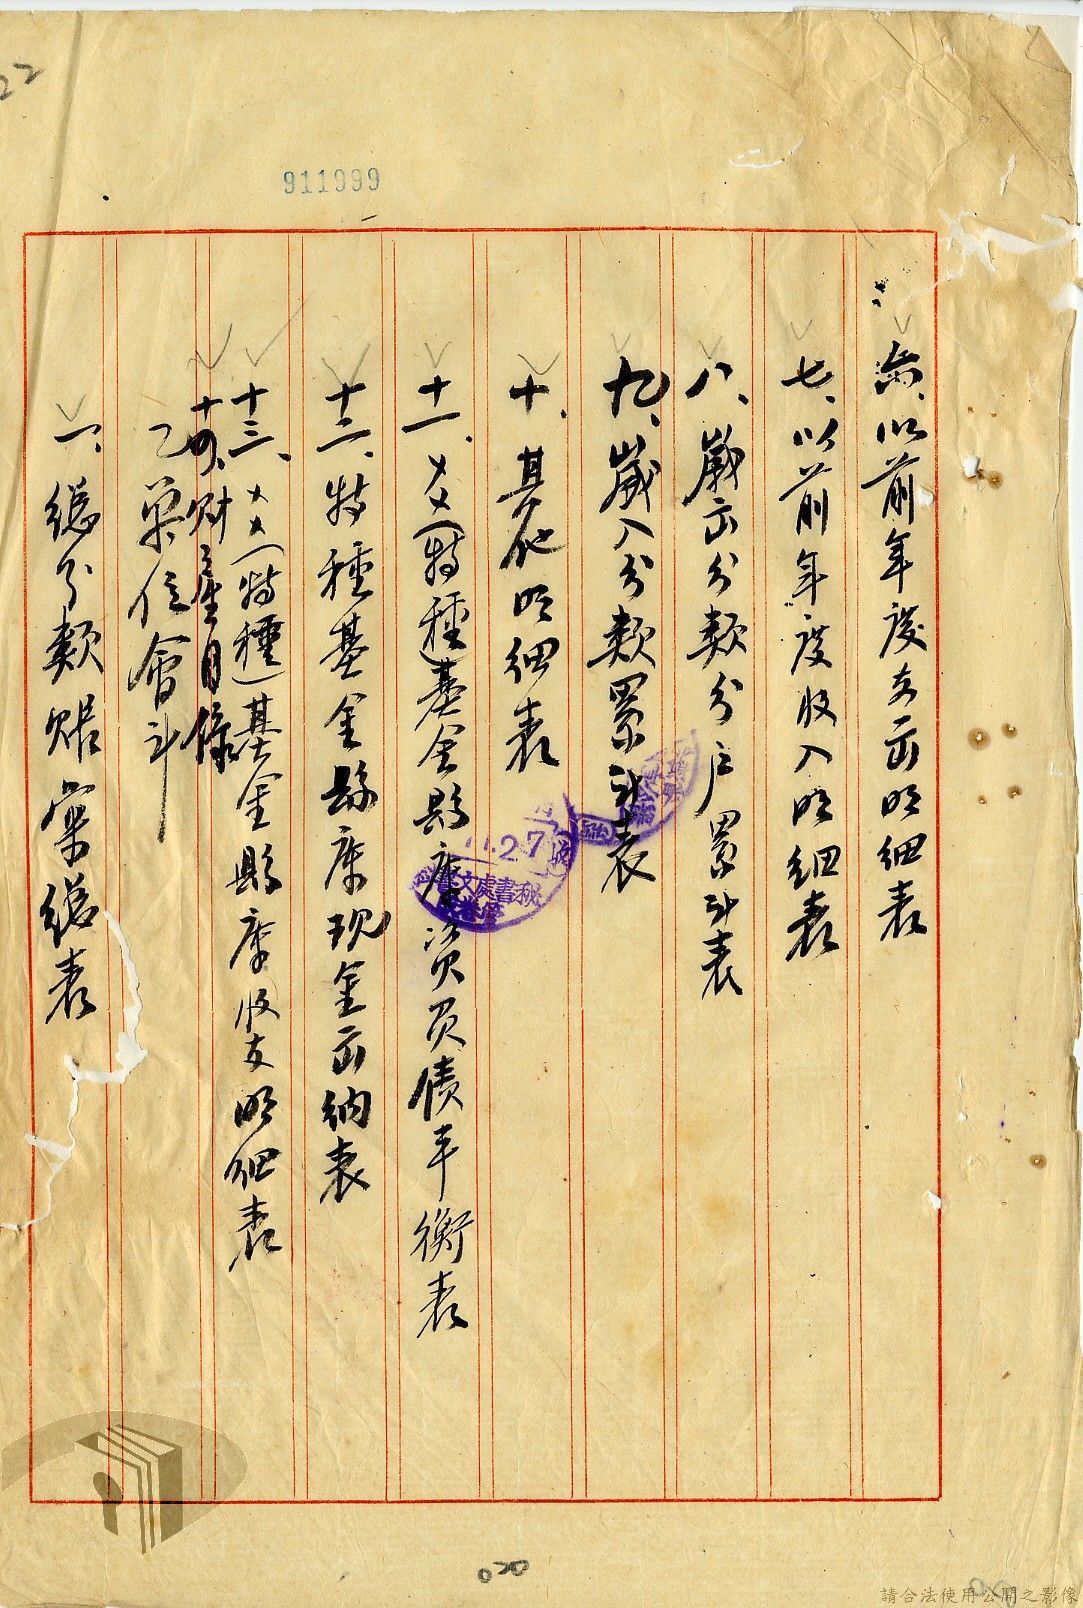 22
911999
六、以前年度支出明細表
七、以前年度收入明細表
八、歲出分類分戶累計表
九、歲入分類累計表
十、其他明細表
十一、××(特種)基金縣庫資負債平衡表
十二、特種基金縣庫現金出納表
十三、××(特種)基金縣庫收支明細表
十四、財產目錄
乙 單位會計
一、總分類賬彙總表
.2.7
秘書處文
020
請合法使用公開之影像